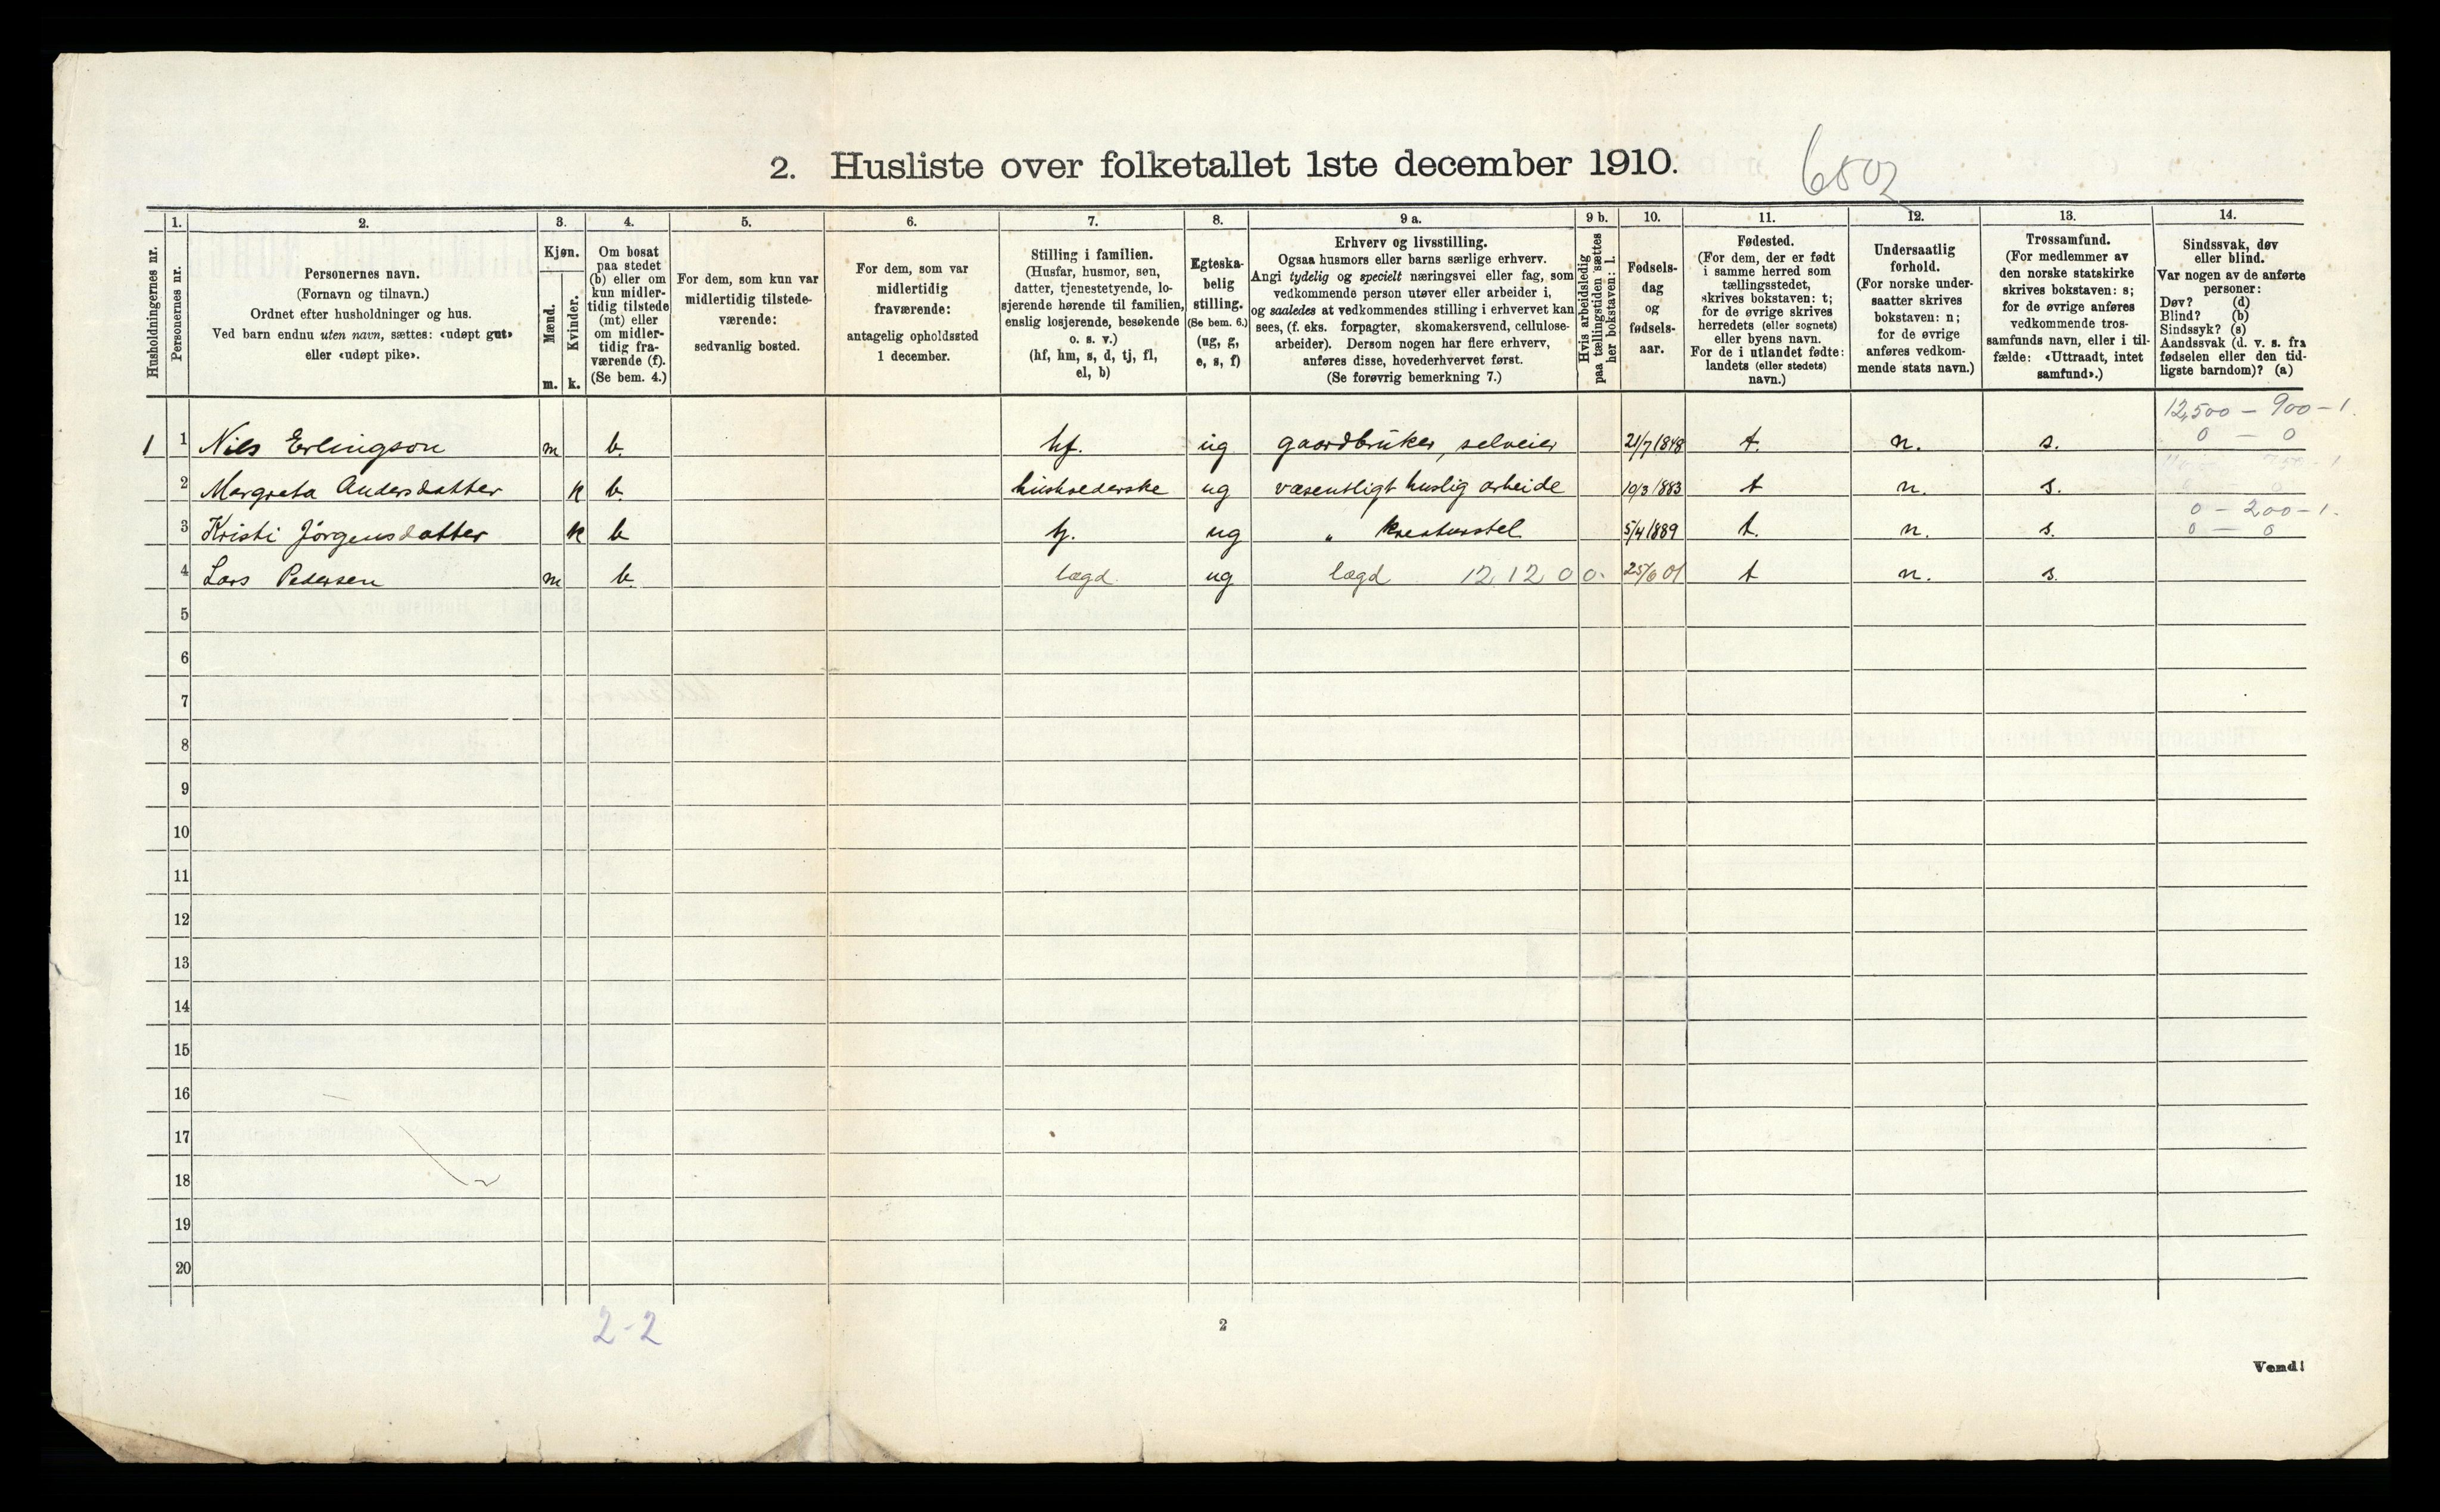 2. Husliste over folketallet 1ste december 1910.
6502
Husholdningernes nr.
1.
Personernes nr.
2.
Personernes navn.
(Fornavn og tilnavn.)
Ordnet efter husholdninger og hus.
Ved barn endnu uten navn, sættes: «udøpt gut»
eller «udøpt pike».
3.
Kjøn.
Mænd.
m.
Kvinder.
k.
4.
Om bosat
paa stedet
(b) eller om
kun midler-
tidig tilstede
(mt) eller
om midler-
tidig fra-
værende (f).
(Se bem. 4.)
5.
For dem, som kun var
midlertidig tilstede-
værende:
sedvanlig bosted.
6.
For dem, som var
midlertidig
fraværende:
antagelig opholdssted
1 december.
7.
Stilling i familien.
(Husfar, husmor, søn,
datter, tjenestetyende, lo-
sjerende hørende til familien,
enslig losjerende, besøkende
o. s. v.)
(hf, hm, s, d, tj, fl,
el, b)
8.
Egteska-
belig
stilling.
(Se bem. 6.)
(ug, g,
e, s, f)
9 a.
Erhverv og livsstilling.
Ogsaa husmors eller barns særlige erhverv.
Angi tydelig og specielt næringsvei eller fag, som
vedkommende person utøver eller arbeider i,
og saaledes at vedkommendes stilling i erhvervet kan
sees, (f. eks. forpagter, skomakersvend, cellulose-
arbeider). Dersom nogen har flere erhverv,
anføres disse, hovederhvervet først.
(Se forøvrig bemerkning 7.)
9 b.
Hvis arbeidsledig
paa tællingstiden sættes
her bokstaven: l.
10.
Fødsels-
dag
og
fødsels-
aar.
11.
Fødested.
(For dem, der er født
i samme herred som
tællingsstedet,
skrives bokstaven: t;
for de øvrige skrives
herredets (eller sognets)
eller byens navn.
For de i utlandet fødte:
landets (eller stedets)
navn.)
12.
Undersaatlig
forhold.
(For norske under-
saatter skrives
bokstaven: n;
for de øvrige
anføres vedkom-
mende stats navn.)
13.
Trossamfund.
(For medlemmer av
den norske statskirke
skrives bokstaven: s;
for de øvrige anføres
vedkommende tros-
samfunds navn, eller i til-
fælde: «Uttraadt, intet
samfund».)
14.
Sindssvak, døv
eller blind.
Var nogen av de anførte
personer:
Døv? (d)
Blind? (b)
Sindssyk? (s)
Aandssvak (d. v. s. fra
fødselen eller den tid-
ligste barndom)? (a)
12,500 – 900 – 1.
1 1 Nils Erlingson m b. hf. ug gaardbruker, selveier 21/7 1848 t. n. s. 0 – 0
2 Margreta Andersdatter k b. husholderske ug væsentligt huslig arbeide 10/3 1883 t n. s.
0 – 200 – 1.
3 Kristi Jörgensdatter k b tj. ug „ kreaturstel 5/4 1889 t. n. s. 0 – 0
4 Lars Pedersen m b. lægd ug lægd 12 12 0 0. 25/6 01 t n. s.
5
6
7
8
9
10
11
12
13
14
15
16
17
18
19
20
2-2
2
Vend!